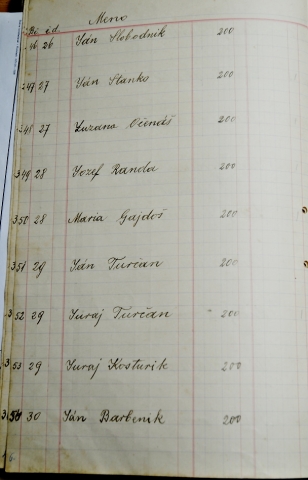 Meno
46 26 Ján Slobodník 200
347 27 Ján Stanko 200
348 27 Zuzana Očenáš 200
349 28 Jozef Randa 200
350 28 Maria Gajdoš 200
351 29 Ján Turčan 200
352 29 Juraj Turčan 200
353 29 Juraj Kosturik 200
354 30 Ján Barbenik 200